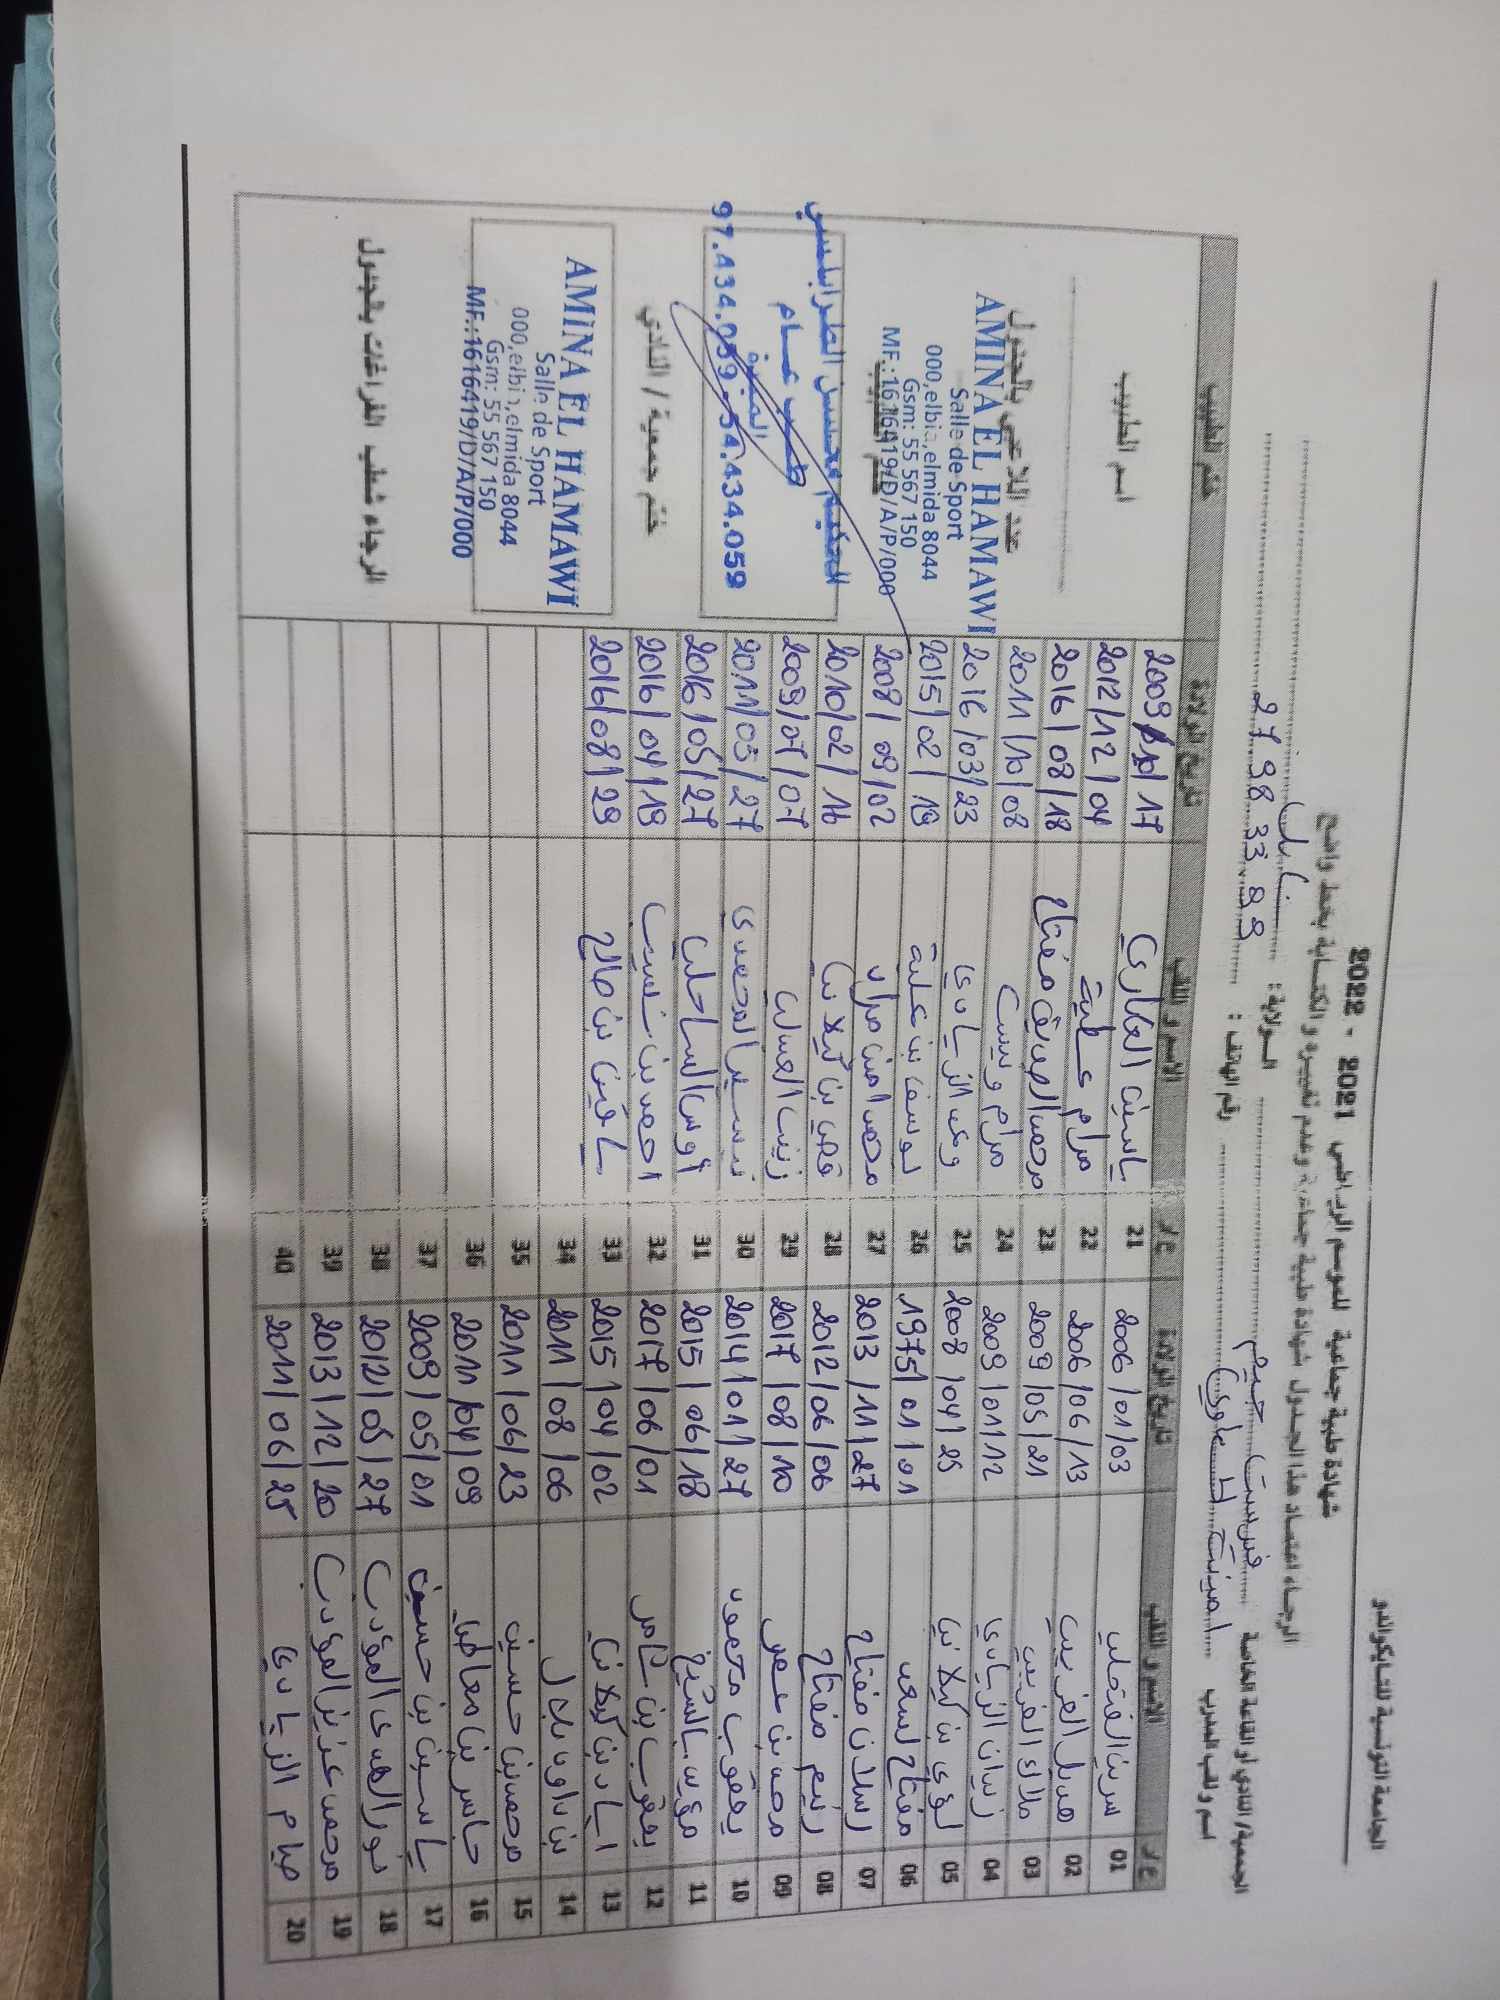 الجامعة التونسية للتايكواندو
شهادة طبية جماعية للموسم الرياضي 2021 - 2022
الرجاء اعتماد هذا الجدول شهادة طبية جماعية وعدم تغييره والكتابة بخط واضح
الجمعية/ النادي أو القاعة الخاصة فرست جيم الولاية : نابل
اسم ولقب المدرب امينة الحماوي رقم الهاتف : 27 98 33 99
ع/د الاسم و اللقب تاريخ الولادة ع/د الاسم و اللقب تاريخ الولادة ختم الطبيب
01 سرين الفتحلي 2006/01/03 21 ياسين العكاري 2009/10/17
02 هديل الغريبي 2006/06/13 22 مرام عطية 2012/12/04
03 ملاك الغريبي 2009/05/21 23 محمد الصديق مفتاح 2016/08/18
04 زينان الزيادي 2009/01/12 24 مرام ونيس 2011/10/08
05 لؤي بن كيلاني 2008/04/25 25 وعد الزيادي 2016/03/23
06 مفتاح لسعد 1975/01/01 26 يوسف بن علية 2015/02/19
07 رسلان مفتاح 2013/11/27 27 محمد امين مراد 2008/09/02
08 رنيم مفتاح 2012/06/06 28 بن كيلاني 2010/02/16
09 محمد بن عمر 2017/08/10 29 زينب العسلي 2009/07/07
10 يعقوب محمود 2014/01/27 30 تيسير المحمدي 2011/05/27
11 مؤيد بالشيخ 2015/06/18 31 أوس الساحلي 2016/05/27
12 يعقوب بن عامر 2017/06/01 32 احمد بن نسيب 2016/04/19
13 اياد بن كيلاني 2015/04/02 33 بن صالح 2016/08/29
14 بن داود بلال 2011/08/06 34
15 محمد بن حسين 2011/06/23 35
16 جاسر بن معاطي 2011/04/09 36
17 ياسين بن حسين 2009/05/01 37
18 نور الهدى المؤدب 2012/05/27 38
19 محمد عزيز المؤدب 2013/12/20 39
20 صيام الزيادي 2011/06/25 40
اسم الطبيب
عدد اللاعبي بالجدول
AMINA EL HAMAWI
Salle de Sport
000,elbia,elmida 8044
Gsm: 55 567 150
MF.:1616419/D/A/P/000
الحكيم محسن الطرابلسي
طبيب عام
الميدة
97.434.059 - 54.434.059
ختم جمعية / النادي
AMINA EL HAMAWI
Salle de Sport
000,elbia,elmida 8044
Gsm: 55 567 150
MF.:1616419/D/A/P/000
الرجاء شطب الفراغات بالجدول